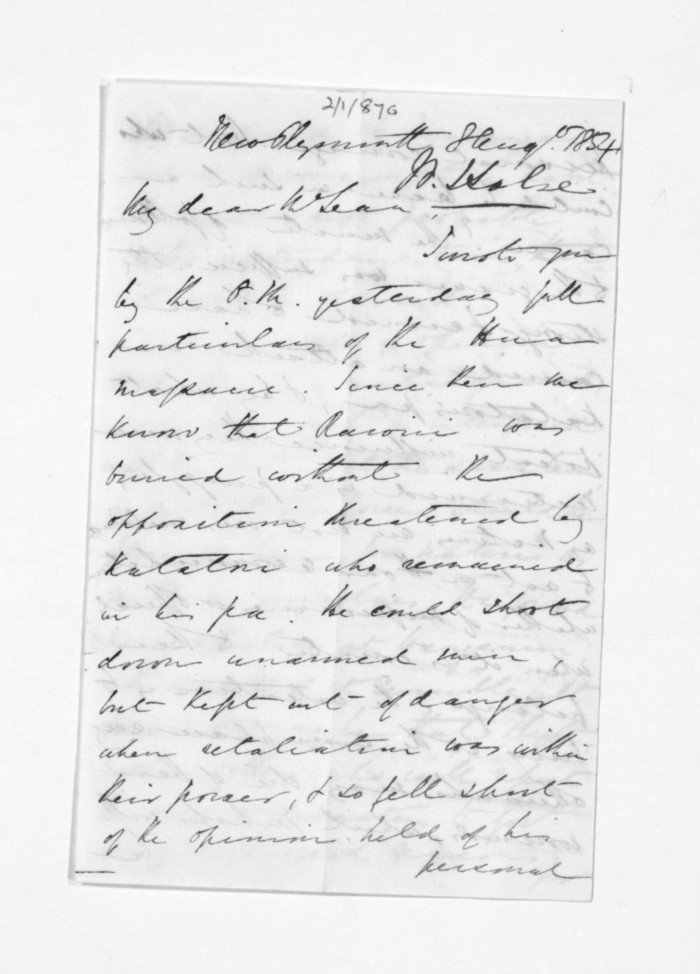 2/1/87G
New Plymouth, 8 Augt. 1854
W. Halse
My dear McLean,
I wrote you
by the O.M. yesterday full
particulars of the Hua
massacre. Since then we
know that Rawiri was
buried without the
opposition threatened by
Katatori who remained
in his pa. He could shoot
down unarmed men,
but kept out of danger
when retaliation was within
their power, & so fell short
of the opinion held of his
personal